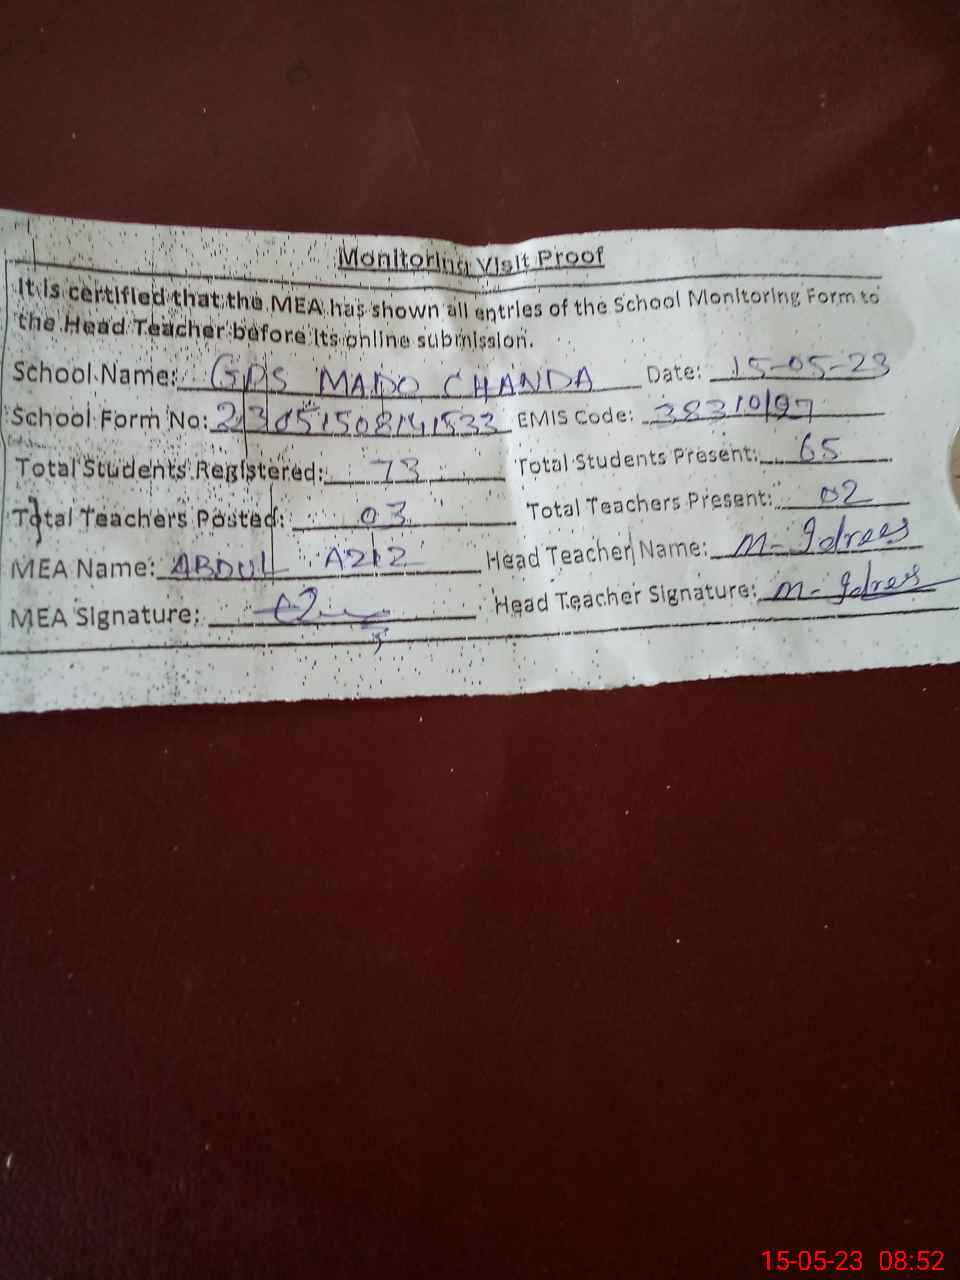 Monitoring Visit Proof
It is certified that the MEA has shown all entries of the School Monitoring Form to
the Head Teacher before its online submission.
School Name: GPS MADO CHANDA Date: 15-05-23
School Form No: 23051508141533 EMIS Code: 38310197
Total Students Registered: 73 Total Students Present: 65
Total Teachers Posted: 03 Total Teachers Present: 02
MEA Name: ABDUL AZIZ Head Teacher Name: M- Idrees
MEA Signature: Head Teacher Signature: M- Idrees
15-05-23 08:52